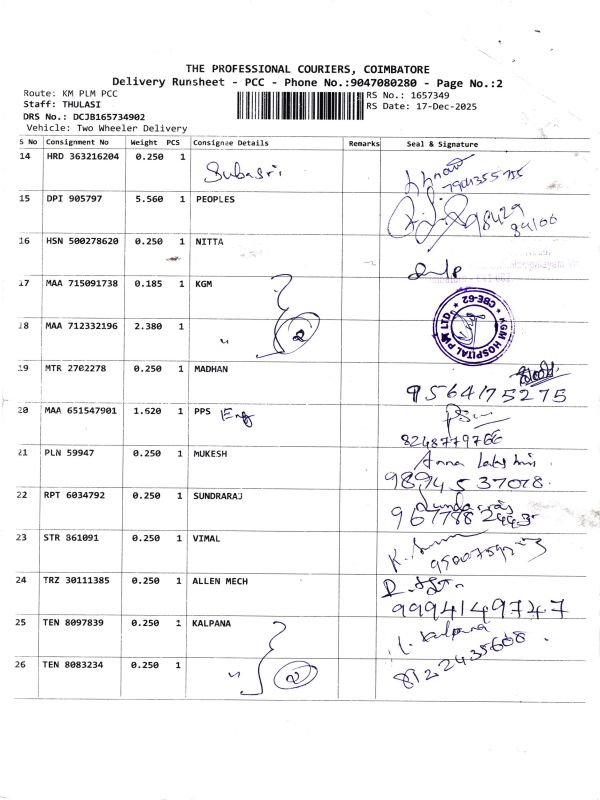 THE PROFESSIONAL COURIERS, COIMBATORE
Delivery Runsheet - PCC - Phone No.:9047080280 - Page No.:2
Route: KM PLM PCC
RS No.: 1657349
Staff: THULASI
RS Date: 17-Dec-2025
DRS No.: DCJB165734902
Vehicle: Two Wheeler Delivery
S No Consignment No Weight PCS Consignee Details Remarks Seal & Signature
14 HRD 363216204 0.250 1 Subasri
15 DPI 905797 5.560 1 PEOPLES
98429
94106
16 HSN 500278620 0.250 1 NITTA
17 MAA 715091738 0.185 1 KGM
KGM HOSPITAL PVT LTD * CBE-62 *
18 MAA 712332196 2.380 1 " 2
19 MTR 2702278 0.250 1 MADHAN
9564175275
20 MAA 651547901 1.620 1 PPS Eng
21 PLN 59947 0.250 1 MUKESH Anna Lakshmi.
98945 37078.
22 RPT 6034792 0.250 1 SUNDRARAJ
9677882443
23 STR 861091 0.250 1 VIMAL
24 TRZ 30111385 0.250 1 ALLEN MECH
9994149747
25 TEN 8097839 0.250 1 KALPANA Kalpana
26 TEN 8083234 0.250 1 " 2 8122435608